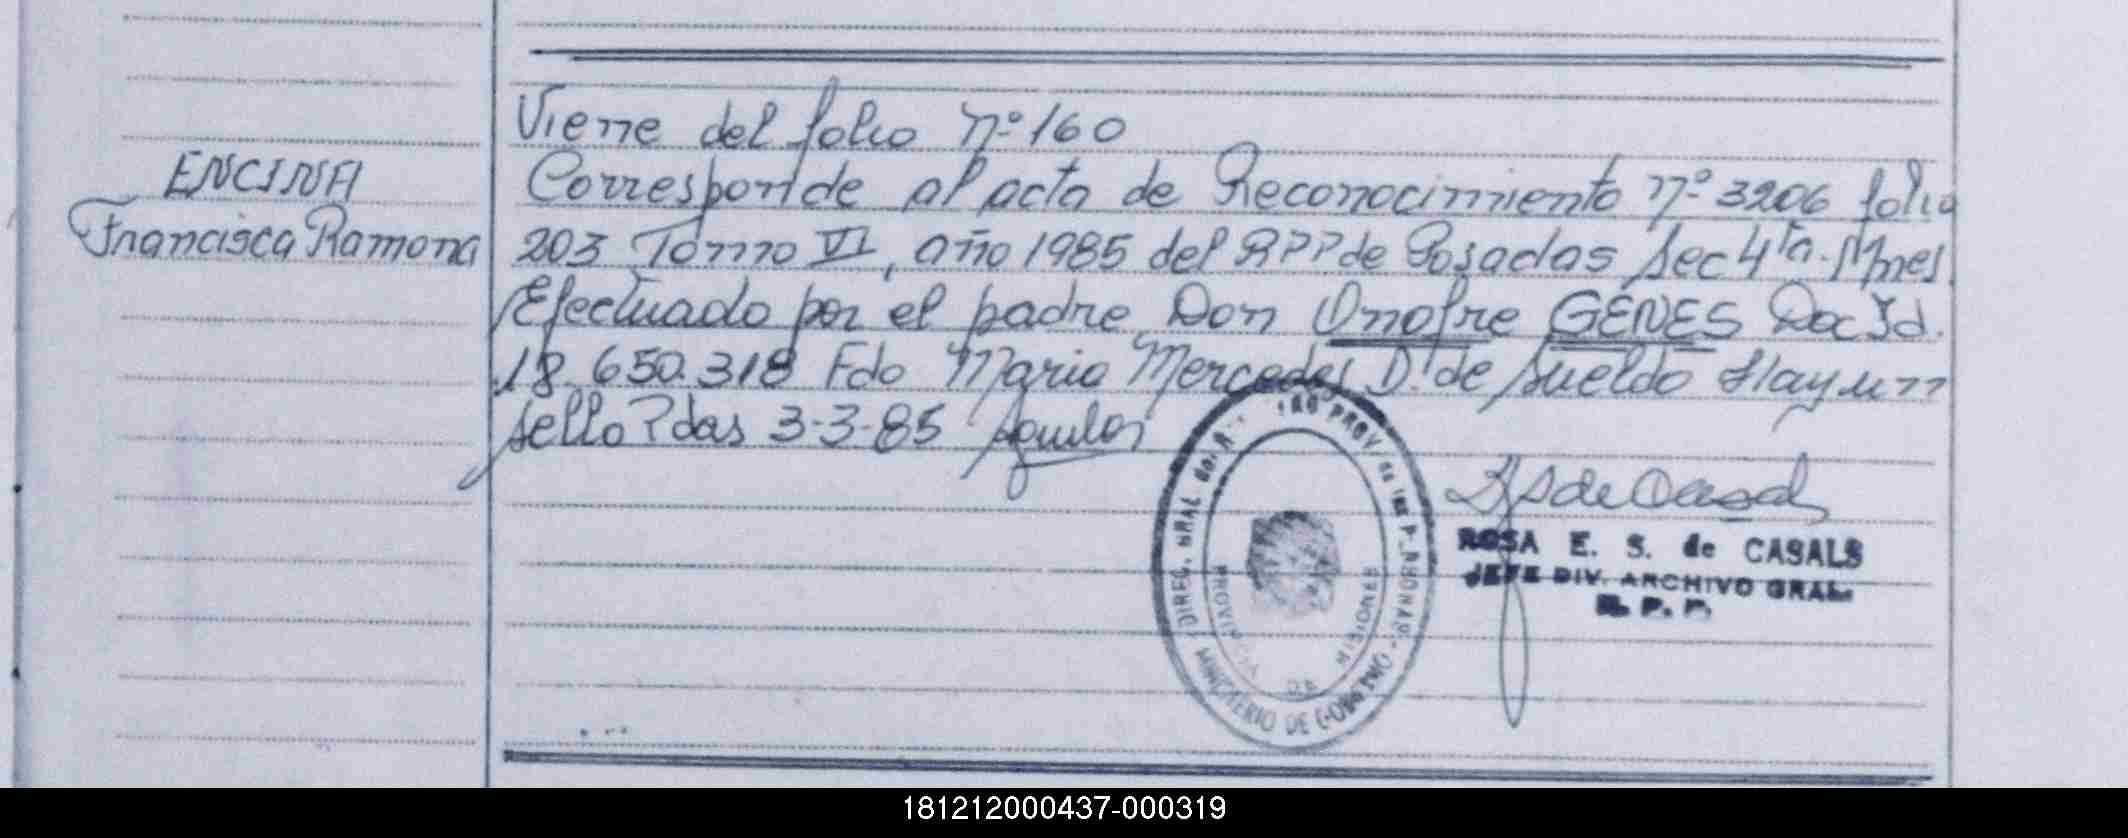 Viene del folio nº 160
ENCINA
Francisca Ramona
Corresponde al acta de Reconocimiento nº 3206 folio
203 Tomo VI, año 1985 del RPP de Posadas Sec 4ta. Mnes
Efectuado por el padre Don Onofre GENES Doc Id.
18.650.318 Fdo Maria Mercedes D. de Sueldo Hay un
sello Pdas 3-3-85
DIREC. GRAL DEL REG PROV. DE LAS PERSONAS - MINISTERIO DE GOBIERNO
PROVINCIA DE MISIONES
ROSA E. S. de CASALS
JEFE DIV. ARCHIVO GRAL.
R. P. P.
181212000437-000319